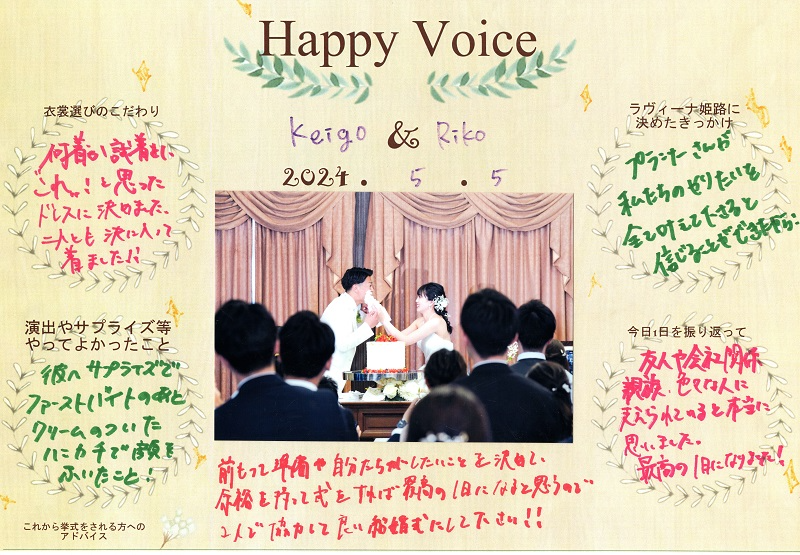 Happy Voice
Keigo & Riko
2024. 5. 5
衣裳選びのこだわり
何着か試着をし
"これ!!"と思った
ドレスに決めました。
二人とも気に入って
着ました!!
ラヴィーナ姫路に
決めたきっかけ
プランナーさんが
私たちのやりたいを
全て叶えて下さると
信じることができたから!
演出やサプライズ等
やってよかったこと
彼へサプライズで
ファーストバイトのあと
クリームのついた
ハンカチで顔を
ふいたこと!
今日1日を振り返って
友人や会社関係
親族、色々な人に
支えられていると本当に
思いました。
最高の1日になりました!
前もって準備や自分たちがしたいことを決めて、
余裕を持って式をすれば最高の1日になると思うので
2人で協力して良い結婚式にして下さい!!
これから挙式をされる方への
アドバイス